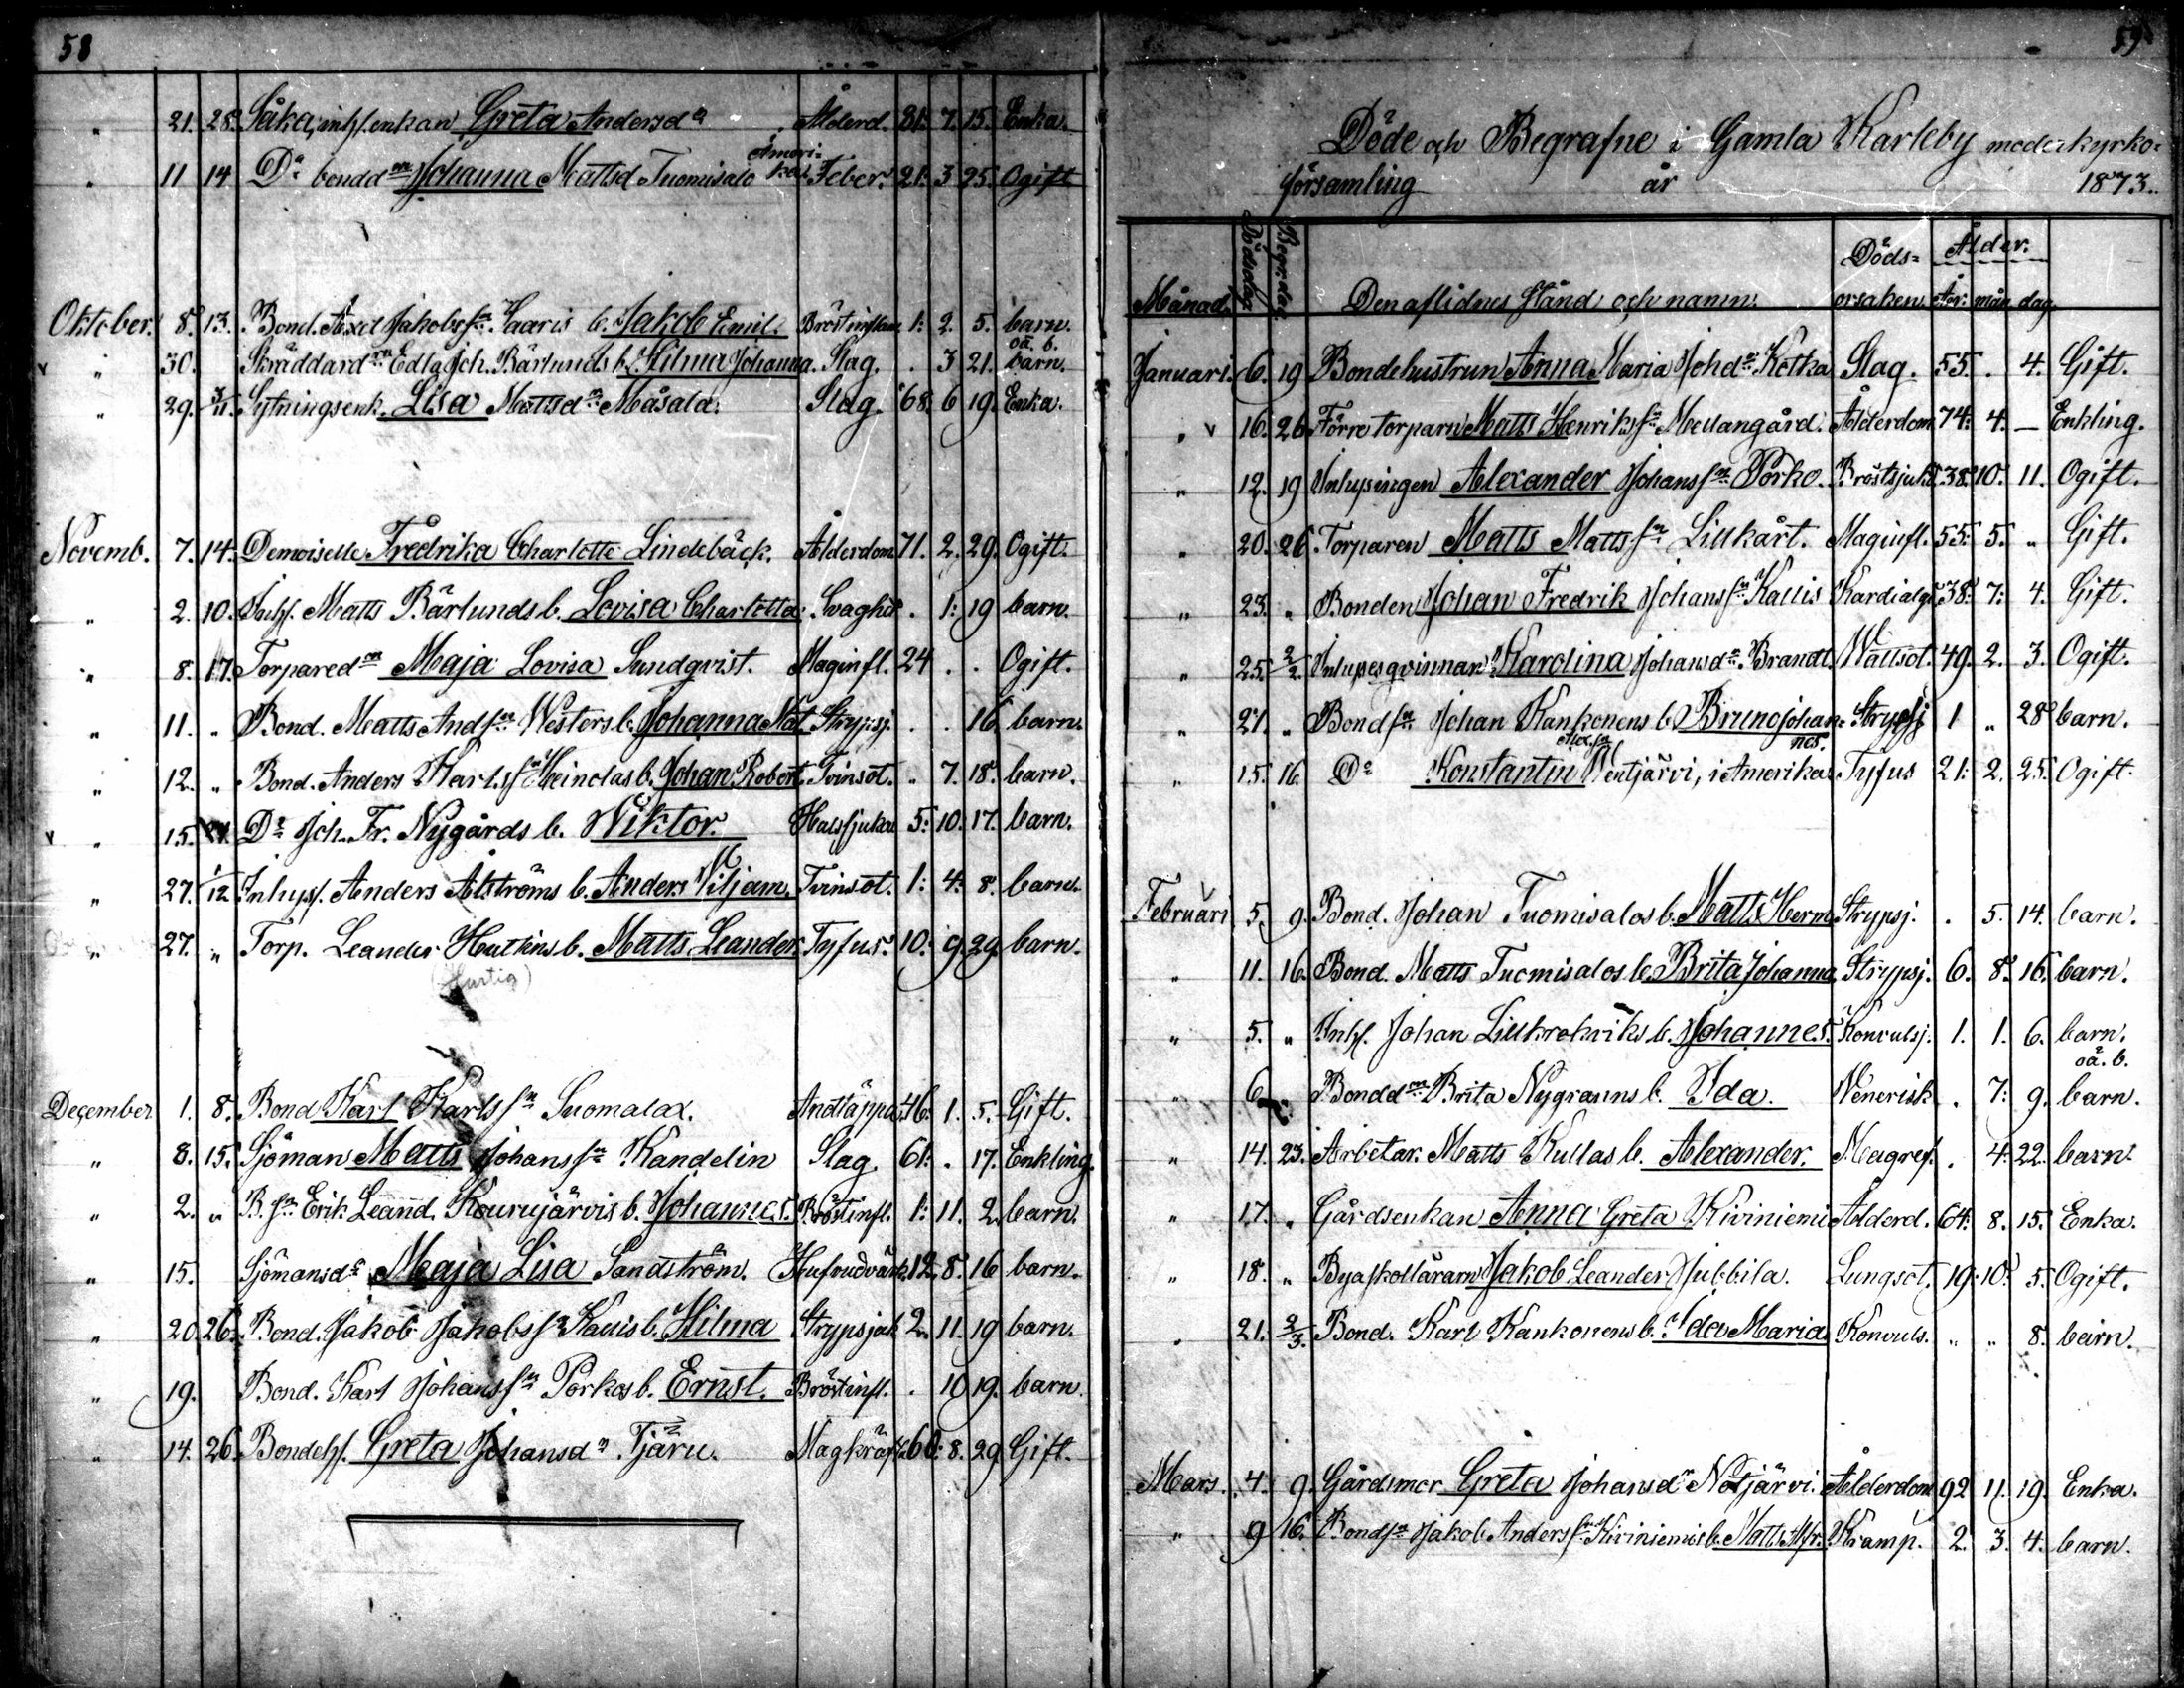 58
" 21. 28. Såka, inhs. enkan Greta Andersdr Ålderd. 81. 7. 15. Enka
" 11 14 Do bonddn Johanna Mattsd Tuomisalo Ameri-
ka Feber. 21. 3 25. Ogift
Oktober. 8. 13. Bond. Axel Jakobssn Haaris b. Jakob Emil. Bröstinflam. 1: 2. 5. barn.
oä. b.
" 30. Skräddardn Edla Joh. Bärlunds b. Hilma Johanna. Slag. . 3 21. barn.
" 29. 3/11. Sytningsenk. Lisa Mattsdr Måsala. Slag. 68. 6 19. Enka.
Novemb. 7. 14. Demoiselle Fredrika Charlotte Lindebäck. Ålderdom 71. 2. 29. Ogift.
" 2. 10. Inhs. Matts Bärlunds b. Lovisa Charlotta. Svaghet . 1: 19 barn.
" 8. 17. Torparedn Maja Lovisa Sundqvist. Maginfl. 24 . . Ogift.
" 11. " Bond. Matts Andssn Westers b. Johanna Mat. Strypsj. . . 16. barn.
" 12. " Bond. Anders Karlssn Heinolas b. Johan Robert. Tvinsot. " 7. 18. barn.
" 15. Do Joh. Fr. Nygårds b. Wiktor. Halssjuka 5: 10. 17. barn.
" 27. 1/12 Inhys. Anders Åströms b. Anders Viljam. Tvinsot. 1: 4: 8. barn.
" 27. " Torp. Leander Hutkins b. Matts Leander. Tyfus. 10. 9. 29. barn.
(Hurtig)
December 1. 8. Bond Karl Karlssn Suomalax. Andtäppa. 46. 1. 5. Gift.
" 8. 15. Sjöman Matts Johanssn Kandelin Slag. 61. . 17. Enkling.
" 2. " B. sn Erik Leand. Kourujärvis b. Johannes. Bröstinfl. 1: 11. 2. barn.
" 15. Sjömansdr Maja Lisa Sandström. Hufvudvärk. 12. 8. 16 barn.
" 20. 26. Bond. Jakob Jakobssn Kallis b. Hilma Strypsjuk 2. 11. 19 barn.
" 19. Bond. Karl Johanssn Porkos b. Ernst. Bröstinfl. . 10 19. barn.
" 14. 26. Bondehs. Greta Johansdr Tjäru. Magkräft. 60. 8. 29 Gift.
59
Döde och Begrafne i Gamla Karleby moderkyrko-
församling år 1873.
Månad. Dödsdag Begr.dag. Den aflidnes stånd och namn. Döds-
orsaken. Ålder. År. mån. dag.
Januari. 6. 19 Bondehustrun Anna Maria Johdr Kotka Slag. 55. . 4. Gift.
" 16. 26. Förre torparn Matts Henrikssn Mellangård. Ålderdom 74: 4. — Enkling.
" 12. 19 Inhysingen Alexander Johanssn Porko. Bröstsjukd. 38. 10. 11. Ogift.
" 20. 26. Torparen Matts Mattssn Lillkårt. Maginfl. 55: 5. " Gift.
" 23. " Bonden Johan Fredrik Johanssn Kallis Kardialgi 38: 7: 4. Gift.
" 25. 2/2. Inhysesqvinnan Karolina Johansdr Brandt. Wattsot. 49. 2. 3. Ogift.
" 21. " Bondsn Johan Kankonens b. Bruno Johan-
nes. Strypsj 1 " 28. barn.
" 15. 16. Do Konstantin Alex.sn Wentjärvi, i Amerika Tyfus 21: 2. 25. Ogift.
Februari 5. 9. Bond. Johan Tuomisalos b. Matts Herm. Strypsj. . 5. 14. barn.
" 11. 16. Bond. Matts Tuomisalos b. Brita Johanna. Strypsj. 6. 8. 16. barn.
" 5. " Inhs. Johan Lillkrokviks b. Johannes. Konvulsj. 1. 1. 6. barn.
oä. b.
" 6 Bonddn Brita Nygranns b. Ida. Wenerisk . 7: 9. barn.
" 14. 23. Arbetar. Matts Kullas b. Alexander. Magref. . 4. 22. barn.
" 17. " Gårdsenkan Anna Greta Kiviniemi Ålderd. 64. 8. 15. Enka.
" 18. " Byaskollärarn Jakob Leander Hubbila. Lungsot. 19. 10. 5. Ogift.
" 21. 2/3. Bond. Karl Kankonens b. Ida Maria. Konvuls. " " 8. barn.
Mars. 4. 9. Gårdsmor Greta Johansdr Nötjärvi. Ålderdom 92 11. 19. Enka.
" 9 16. Bondsn Jakob Anderssn Kiviniemis b. Matts Alfr. Kramp. 2. 3. 4. barn.